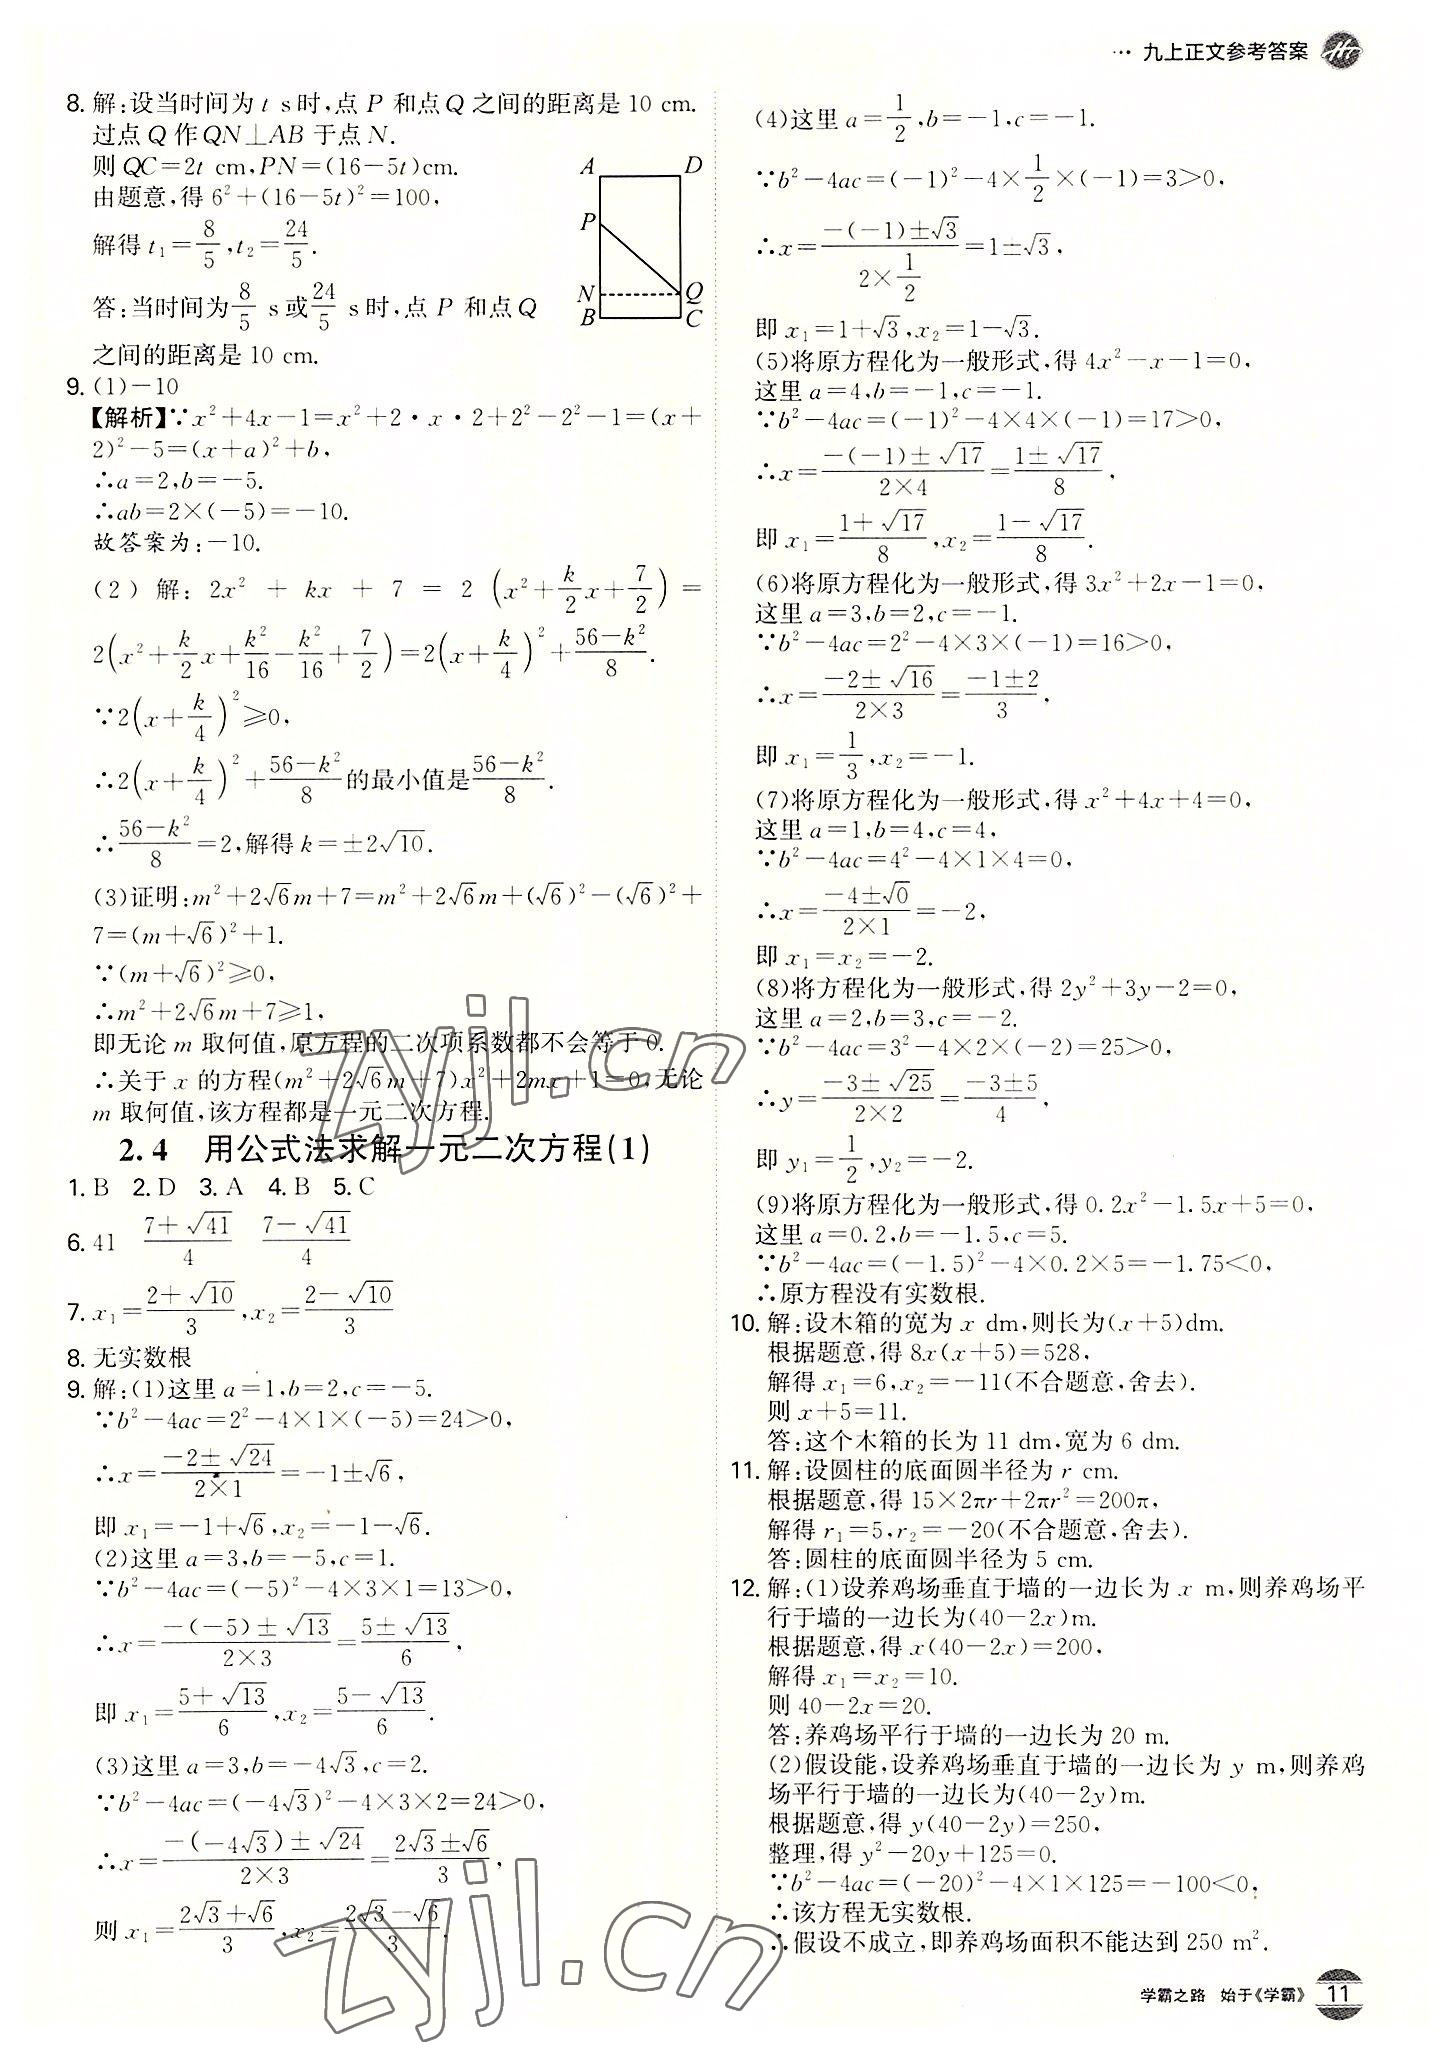 ··· 九上正文参考答案
8. 解:设当时间为 t s时,点 P 和点 Q 之间的距离是 10 cm.
过点 Q 作 QN⊥AB 于点 N.
则 QC=2t cm,PN=(16-5t)cm.
由题意,得 6²+(16-5t)²=100,
解得 t₁=8/5,t₂=24/5.
答:当时间为 8/5 s或 24/5 s时,点 P 和点 Q
之间的距离是 10 cm.
A D
P
N Q
B C
9. (1)-10
【解析】∵x²+4x-1=x²+2·x·2+2²-2²-1=(x+
2)²-5=(x+a)²+b,
∴a=2,b=-5.
∴ab=2×(-5)=-10.
故答案为:-10.
(2)解: 2x² + kx + 7 = 2(x²+k/2 x+7/2) =
2(x²+k/2 x+k²/16-k²/16+7/2)=2(x+k/4)²+(56-k²)/8.
∵2(x+k/4)²≥0,
∴2(x+k/4)²+(56-k²)/8的最小值是(56-k²)/8.
∴(56-k²)/8=2,解得 k=±2√10.
(3)证明:m²+2√6m+7=m²+2√6m+(√6)²-(√6)²+
7=(m+√6)²+1.
∵(m+√6)²≥0,
∴m²+2√6m+7≥1,
即无论 m 取何值,原方程的二次项系数都不会等于 0.
∴关于 x 的方程(m²+2√6m+7)x²+2mx+1=0,无论
m 取何值,该方程都是一元二次方程.
2.4 用公式法求解一元二次方程(1)
1. B 2. D 3. A 4. B 5. C
6. 41 (7+√41)/4 (7-√41)/4
7. x₁=(2+√10)/3,x₂=(2-√10)/3
8. 无实数根
9. 解:(1)这里 a=1,b=2,c=-5.
∵b²-4ac=2²-4×1×(-5)=24>0,
∴x=(-2±√24)/(2×1)=-1±√6,
即 x₁=-1+√6,x₂=-1-√6.
(2)这里 a=3,b=-5,c=1.
∵b²-4ac=(-5)²-4×3×1=13>0,
∴x=(-(-5)±√13)/(2×3)=(5±√13)/6,
即 x₁=(5+√13)/6,x₂=(5-√13)/6.
(3)这里 a=3,b=-4√3,c=2.
∵b²-4ac=(-4√3)²-4×3×2=24>0,
∴x=(-(-4√3)±√24)/(2×3)=(2√3±√6)/3,
则 x₁=(2√3+√6)/3,x₂=(2√3-√6)/3.
(4)这里 a=1/2,b=-1,c=-1.
∵b²-4ac=(-1)²-4×1/2×(-1)=3>0,
∴x=(-(-1)±√3)/(2×1/2)=1±√3,
即 x₁=1+√3,x₂=1-√3.
(5)将原方程化为一般形式,得 4x²-x-1=0,
这里 a=4,b=-1,c=-1.
∵b²-4ac=(-1)²-4×4×(-1)=17>0,
∴x=(-(-1)±√17)/(2×4)=(1±√17)/8,
即 x₁=(1+√17)/8,x₂=(1-√17)/8.
(6)将原方程化为一般形式,得 3x²+2x-1=0,
这里 a=3,b=2,c=-1.
∵b²-4ac=2²-4×3×(-1)=16>0,
∴x=(-2±√16)/(2×3)=(-1±2)/3,
即 x₁=1/3,x₂=-1.
(7)将原方程化为一般形式,得 x²+4x+4=0,
这里 a=1,b=4,c=4,
∵b²-4ac=4²-4×1×4=0,
∴x=(-4±√0)/(2×1)=-2,
即 x₁=x₂=-2.
(8)将方程化为一般形式,得 2y²+3y-2=0,
这里 a=2,b=3,c=-2.
∵b²-4ac=3²-4×2×(-2)=25>0,
∴y=(-3±√25)/(2×2)=(-3±5)/4,
即 y₁=1/2,y₂=-2.
(9)将原方程化为一般形式,得 0.2x²-1.5x+5=0,
这里 a=0.2,b=-1.5,c=5.
∵b²-4ac=(-1.5)²-4×0.2×5=-1.75<0,
∴原方程没有实数根.
10. 解:设木箱的宽为 x dm,则长为(x+5)dm.
根据题意,得 8x(x+5)=528,
解得 x₁=6,x₂=-11(不合题意,舍去).
则 x+5=11.
答:这个木箱的长为 11 dm,宽为 6 dm.
11. 解:设圆柱的底面圆半径为 r cm.
根据题意,得 15×2πr+2πr²=200π,
解得 r₁=5,r₂=-20(不合题意,舍去).
答:圆柱的底面圆半径为 5 cm.
12. 解:(1)设养鸡场垂直于墙的一边长为 x m,则养鸡场平
行于墙的一边长为(40-2x)m.
根据题意,得 x(40-2x)=200,
解得 x₁=x₂=10.
则 40-2x=20.
答:养鸡场平行于墙的一边长为 20 m.
(2)假设能,设养鸡场垂直于墙的一边长为 y m,则养鸡
场平行于墙的一边长为(40-2y)m.
根据题意,得 y(40-2y)=250,
整理,得 y²-20y+125=0.
∵b²-4ac=(-20)²-4×1×125=-100<0,
∴该方程无实数根.
∴假设不成立,即养鸡场面积不能达到 250 m².
学霸之路 始于《学霸》 11
zyjl.cn
zyjl.cn